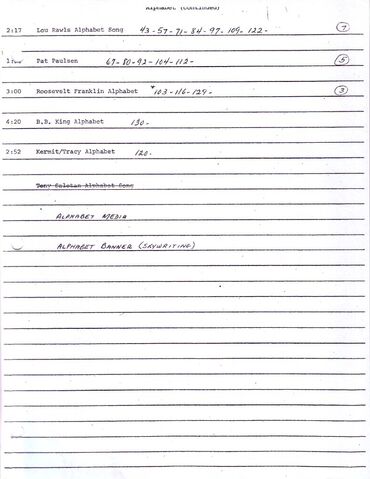 Alphabet (continued)
2:17 Lou Rawls Alphabet Song 43-57-71-84-97-109-122- 7
Pat Paulsen 67-80-92-104-112- 5
3:00 Roosevelt Franklin Alphabet *103-116-129- 3
4:20 B.B. King Alphabet 130-
2:52 Kermit/Tracy Alphabet 120-
Tony Saletan Alphabet Song
ALPHABET MEDIA
ALPHABET BANNER (SKYWRITING)